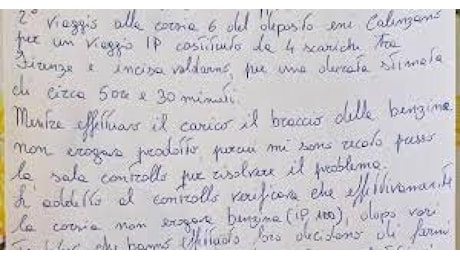 2° viaggio alla corsia 6 del deposito eni Calenzano
per un viaggio IP costituito da 4 scarichi tra
Firenze e incisa valdarno, per una durata stimata
di circa 5 ore e 30 minuti.
Mentre effettuavo il carico il braccio della benzina
non erogava prodotto percui mi sono recato presso
la sala controllo per risolvere il problema.
L'addetto al controllo verificava che effettivamente
la corsia non erogava benzina (IP 100), dopo vari
che hanno effettuato loro decidono di farmi